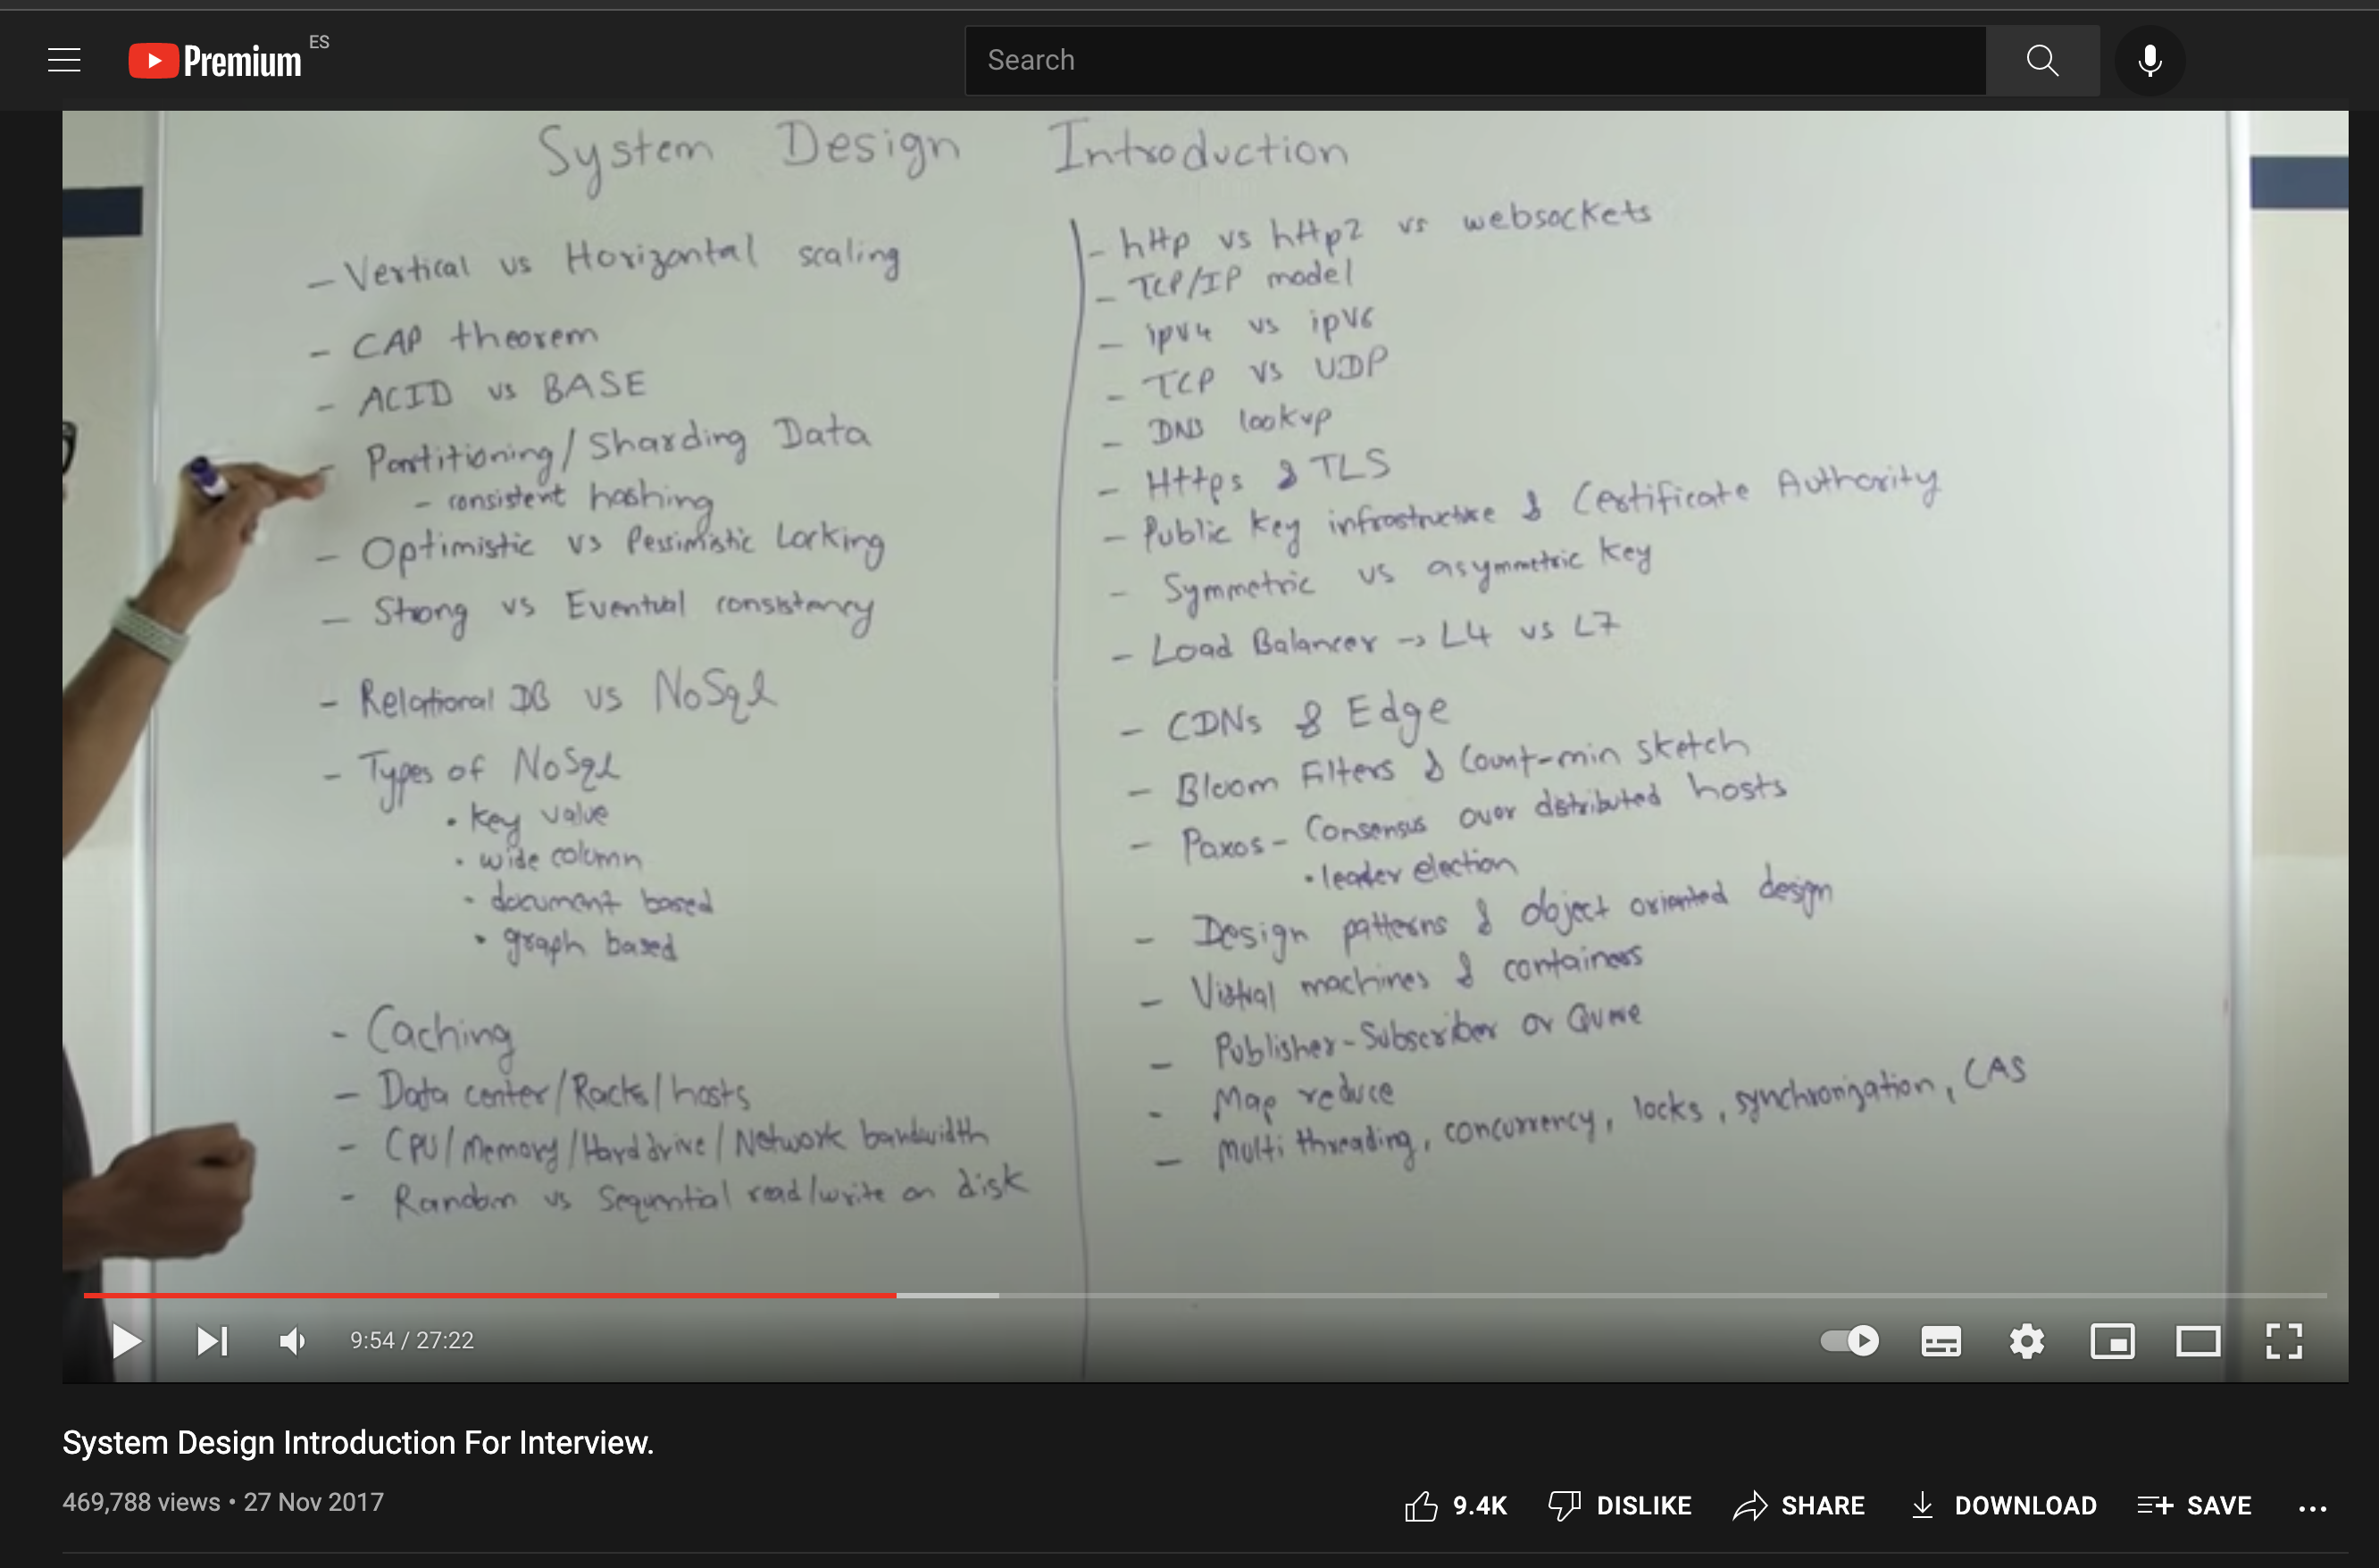 Premium ES
Search
System Design Introduction
- Vertical vs Horizontal scaling
- CAP theorem
- ACID vs BASE
- Partitioning/Sharding Data
- consistent hashing
- Optimistic vs Pessimistic Locking
- Strong vs Eventual consistency
- Relational DB vs NoSql
- Types of NoSql
• key value
• wide column
• document based
• graph based
- Caching
- Data center/Racks/hosts
- CPU/Memory/Hard drive/Network bandwidth
- Random vs Sequential read/write on disk
- http vs http2 vs websockets
- TCP/IP model
- ipv4 vs ipv6
- TCP vs UDP
- DNS lookup
- Https & TLS
- Public key infrastructure & Certificate Authority
- Symmetric vs asymmetric key
- Load Balancer → L4 vs L7
- CDNs & Edge
- Bloom Filters & Count-min sketch
- Paxos - Consensus over distributed hosts
• leader election
- Design patterns & object oriented design
- Virtual machines & containers
- Publisher-Subscriber or Queue
- Map reduce
- Multi threading, concurrency, locks, synchronization, CAS
9:54 / 27:22
System Design Introduction For Interview.
469,788 views • 27 Nov 2017
9.4K DISLIKE SHARE DOWNLOAD SAVE ...